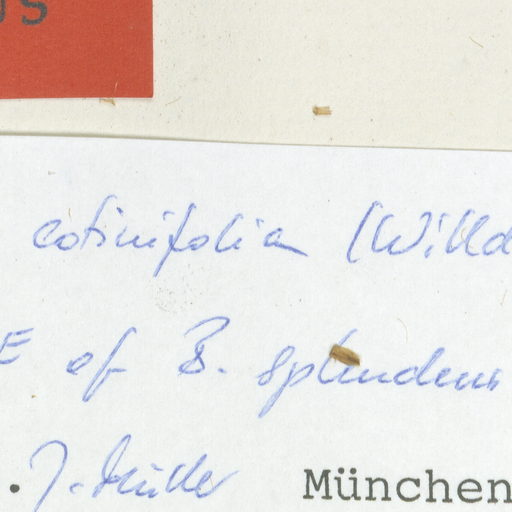 US
cotinifolia (Willd
E of B. splendens
. J. Müller München